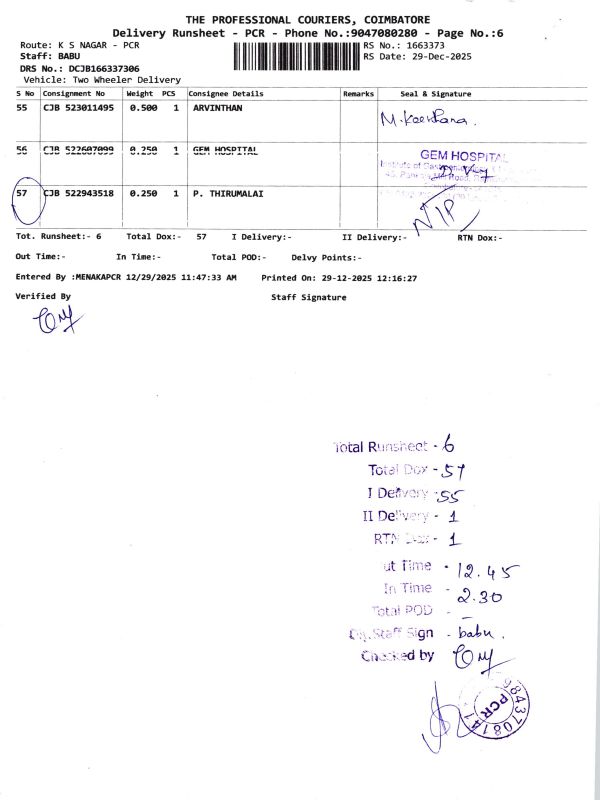 THE PROFESSIONAL COURIERS, COIMBATORE
Delivery Runsheet - PCR - Phone No.:9047080280 - Page No.:6
Route: K S NAGAR - PCR
RS No.: 1663373
Staff: BABU
RS Date: 29-Dec-2025
DRS No.: DCJB166337306
Vehicle: Two Wheeler Delivery
S No Consignment No Weight PCS Consignee Details Remarks Seal & Signature
55 CJB 523011495 0.500 1 ARVINTHAN M.Keerthana.
56 CJB 522607099 0.250 1 GEM HOSPITAL GEM HOSPITAL
57 CJB 522943518 0.250 1 P. THIRUMALAI
Tot. Runsheet:- 6 Total Dox:- 57 I Delivery:- II Delivery:- RTN Dox:-
Out Time:- In Time:- Total POD:- Delvy Points:-
Entered By :MENAKAPCR 12/29/2025 11:47:33 AM Printed On: 29-12-2025 12:16:27
Verified By Staff Signature
Total Runsheet - 6
Total Dox - 57
I Delivery - 55
II Delivery - 1
RTN Dox - 1
ut Time - 12.45
In Time - 2.30
Total POD - -
Staff Sign - babu.
Checked by
PCR